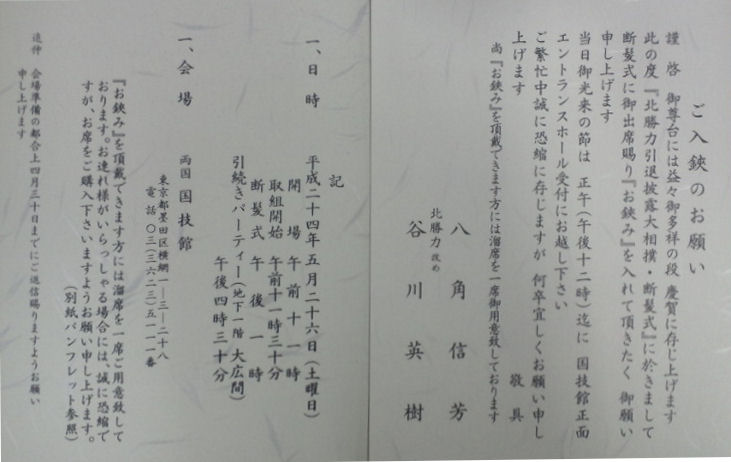 ご入鋏のお願い
謹啓 御尊台には益々御多祥の段 慶賀に存じ上げます
此の度『北勝力引退披露大相撲・断髪式』に於きまして
断髪式に御出席賜り『お鋏み』を入れて頂きたく 御願い
申し上げます
当日御光来の節は 正午(午後十二時)迄に 国技館正面
エントランスホール受付にお越し下さい
ご繁忙中誠に恐縮に存じますが 何卒宜しくお願い申し
上げます
敬具
尚『お鋏み』を頂戴できます方には溜席を一席御用意致しております
八角信芳
北勝力 改め
谷川英樹
記
一、日時 平成二十四年五月二十六日(土曜日)
開場 午前十一時
取組開始 午前十一時三十分
断髪式 午後一時
引続きパーティー(地下一階 大広間)
午後四時三十分
一、会場 両国 国技館
東京都墨田区横網一―三―二十八
電話 〇三(三六二三)五一一一番
『お鋏み』を頂戴できます方には溜席を一席ご用意致して
おります。お連れ様がいらっしゃる場合には、誠に恐縮で
すが、お席をご購入下さいますようお願い申し上げます。
(別紙パンフレット参照)
追伸 会場準備の都合上四月三十日までにご返信賜りますようお願い
申し上げます